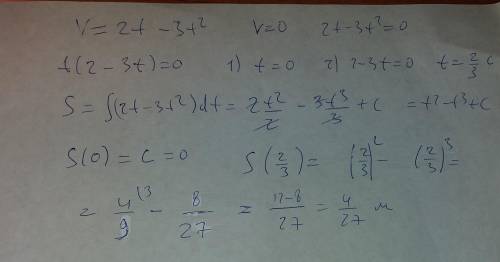 V = 2t - 3t² V=0 2t-3t²=0
t(2-3t)=0 1) t=0 2) 2-3t=0 t=2/3 c
S = ∫(2t-3t²)dt = 2t²/2 - 3t³/3 + c = t²-t³+c
S(0) = C = 0 S(2/3) = (2/3)² - (2/3)³ =
= 4/9 (3 - 8/27 = 12-8/27 = 4/27 м